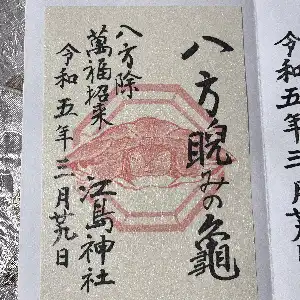 八方睨みの亀
江島神社
八方除
萬福招来
令和五年三月廿九日
令和五